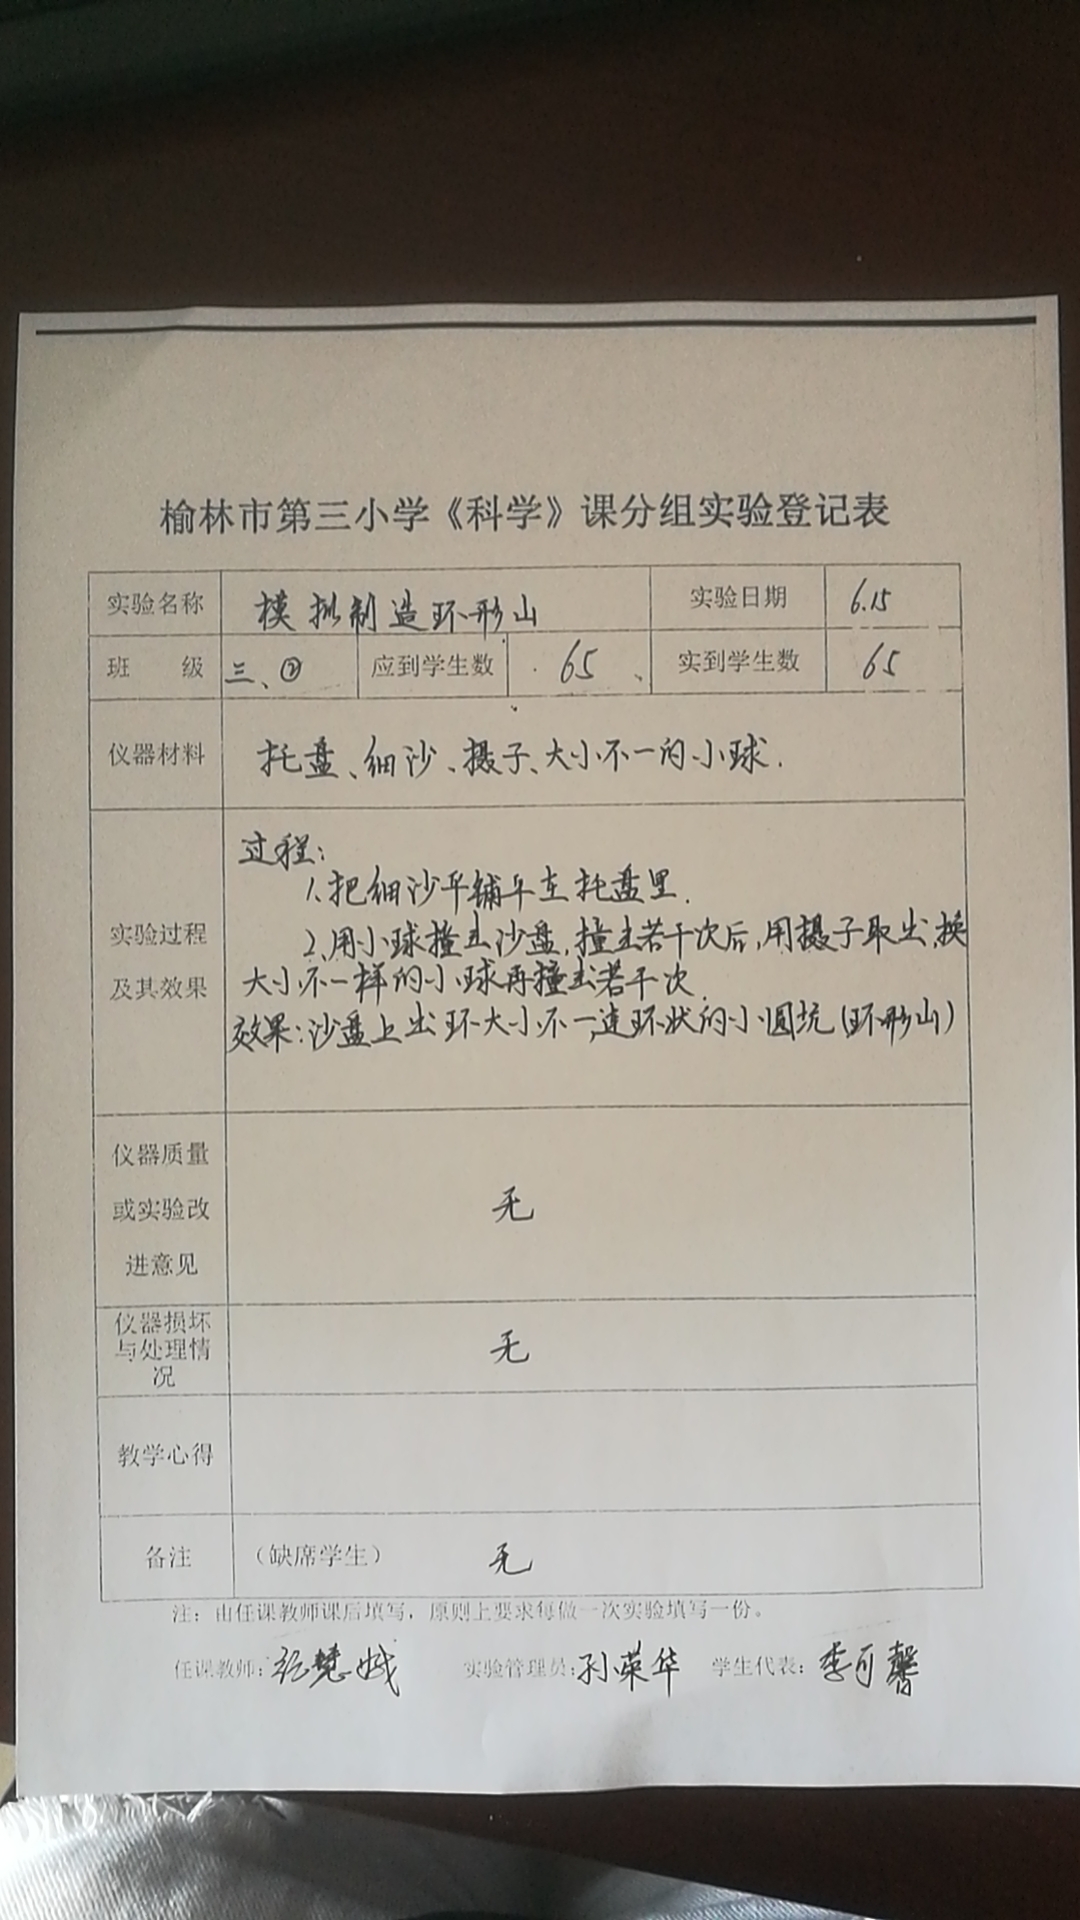 榆林市第三小学《科学》课分组实验登记表
实验名称 模拟制造环形山 实验日期 6.15
班 级 三、② 应到学生数 65 实到学生数 65
仪器材料 托盘、细沙、摄子、大小不一的小球.
过程:
1、把细沙平铺在托盘里.
实验过程
2、用小球撞击沙盘,撞击若干次后,用摄子取出,换
及其效果
大小不一样的小球再撞击若干次.
效果:沙盘上出环大小不一,连环状的小圆坑(环形山)
仪器质量
或实验改
进意见
无
仪器损坏
与处理情
况
无
教学心得
备注 (缺席学生) 无
注:由任课教师课后填写,原则上要求每做一次实验填写一份。
任课教师: 慧娥 实验管理员:孙荣华 学生代表:李可馨